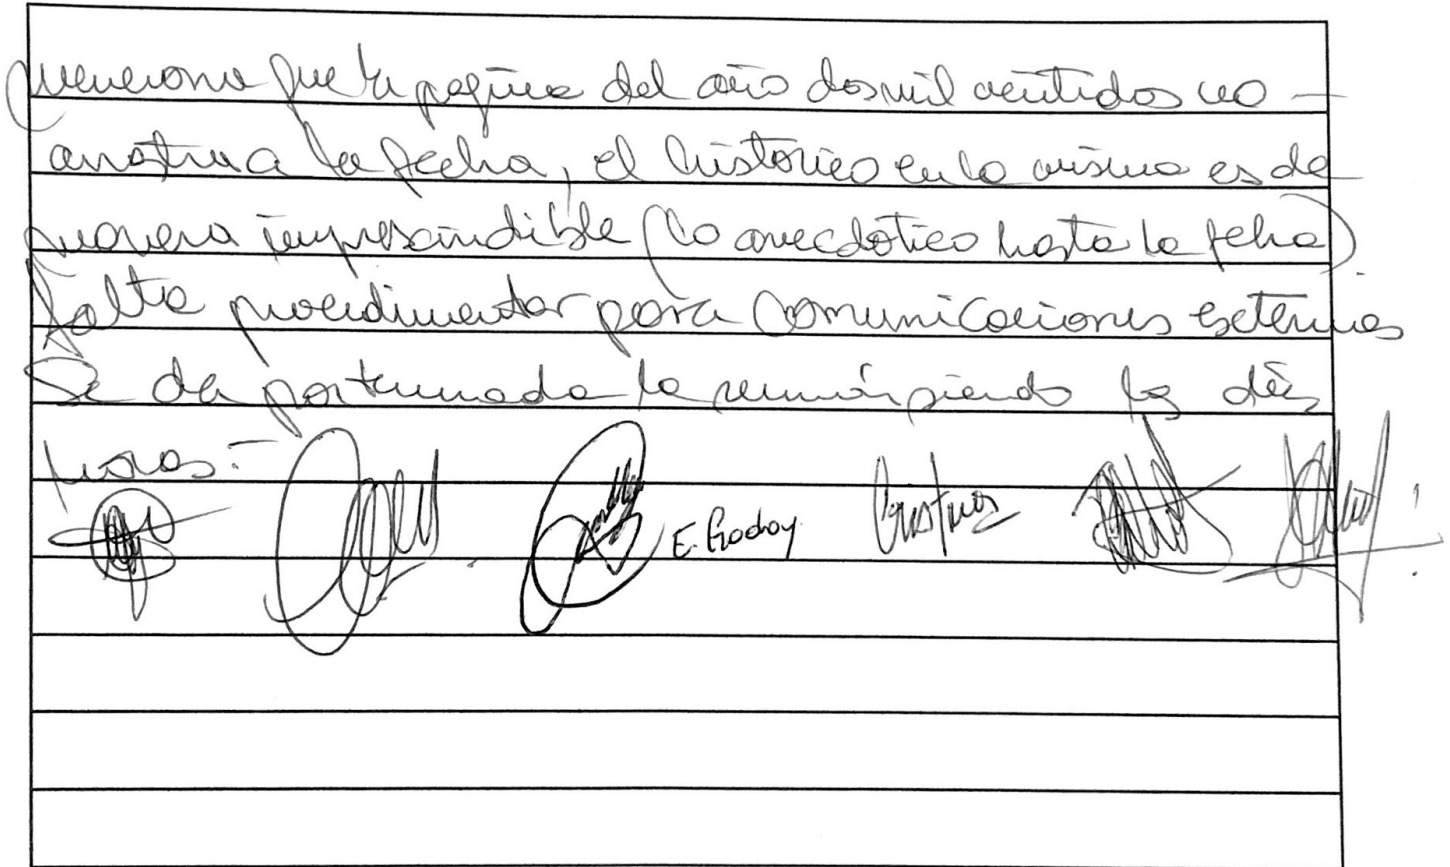 menciona que la pagina del año dos mil veintidos no —
arrastra a la fecha, el histórico en lo mismo es de
manera imprescindible (lo anecdotico hasta la fecha)
falta procedimentar para comunicaciones externas
Se da por terminada la reunión siendo las diez
horas.-
E. Godoy